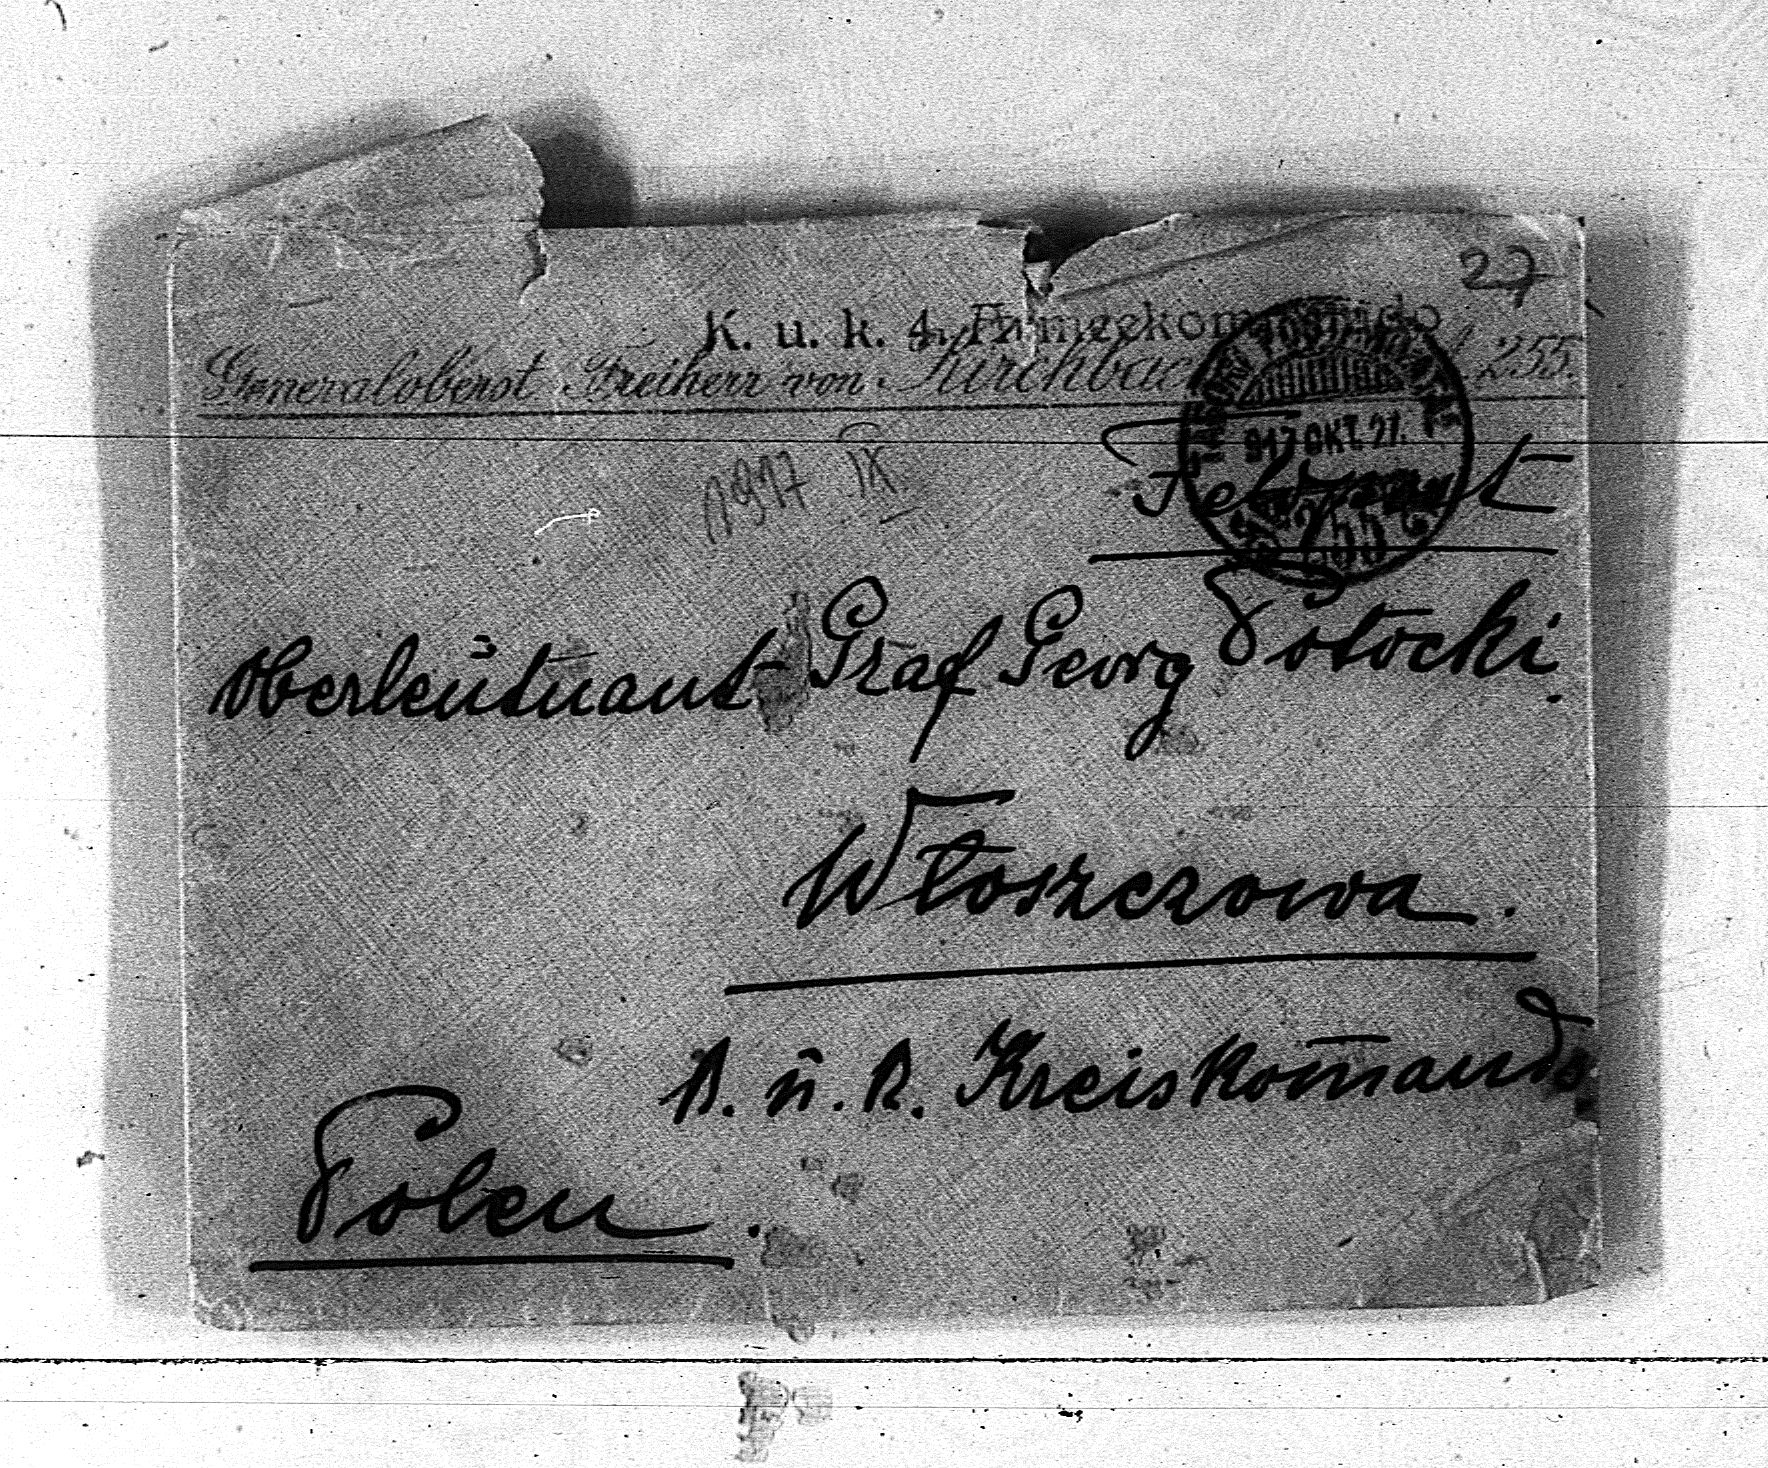 27
K. u. k. 4. Armeekommando
Generaloberst Freiherr von Kirchbach 255.
917 OKT. 27.
255
1917 IX.
Feldpost
Oberleutnant Graf Georg Potocki.
Włoszczowa.
K. u. K. Kreiskom̄ando
Polen.